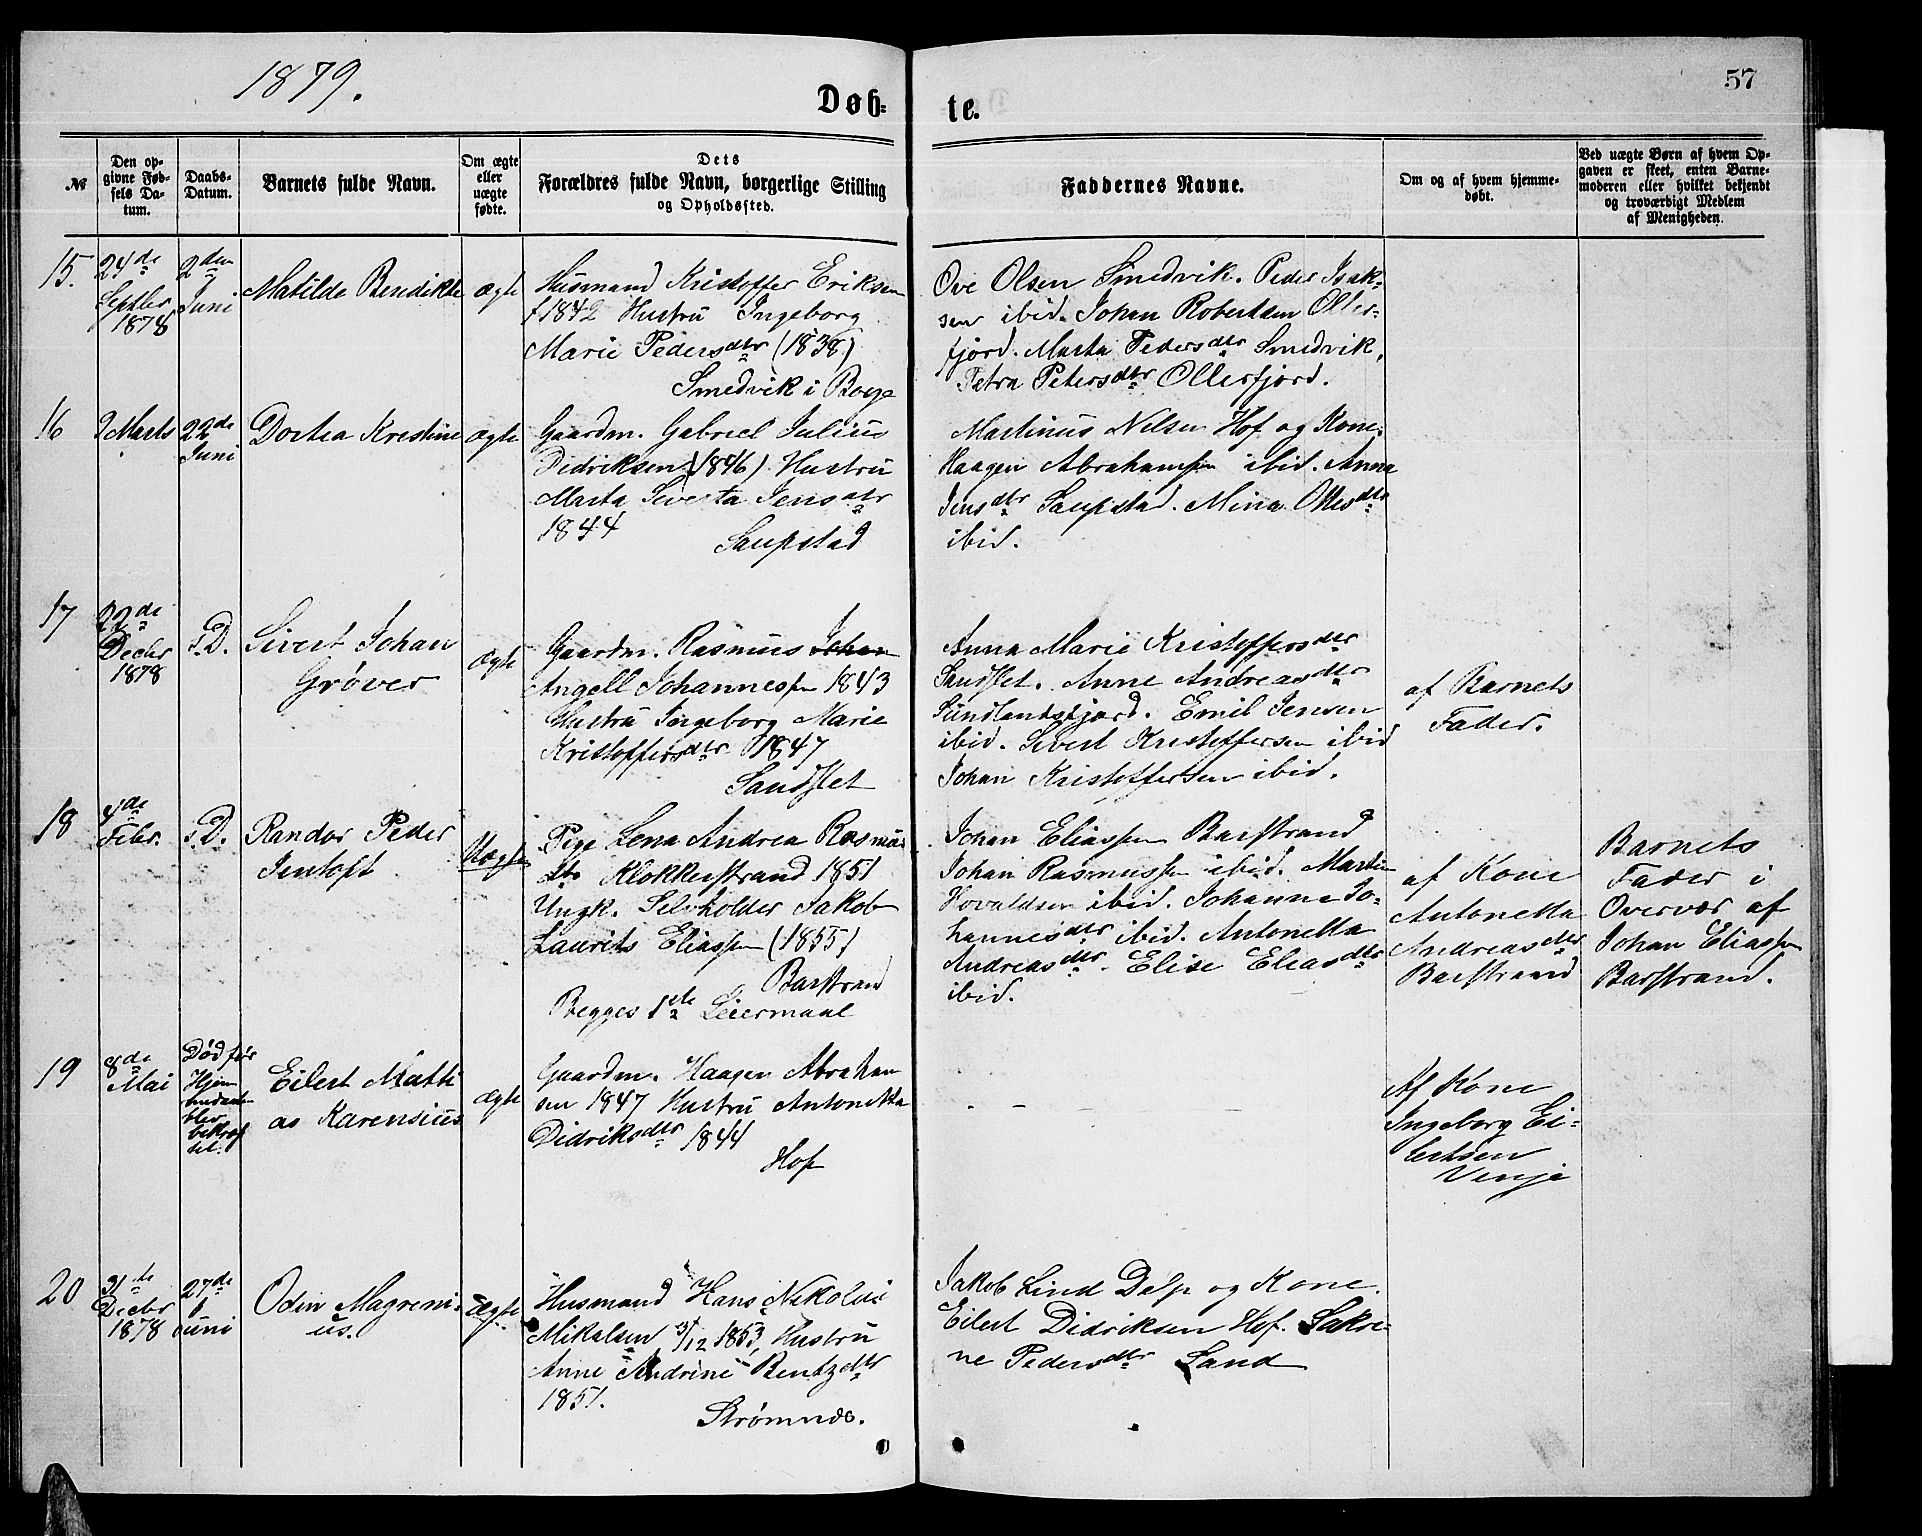 1879.
57
Døb-
te.
№
Den op-
givne Fød-
sels Da-
tum.
Daabs-
Datum.
Barnets fulde Navn.
Om ægte
eller
uægte
fødte.
Dets
Forældres fulde Navn, borgerlige Stilling
og Opholdssted.
Faddernes Navne.
Om og af hvem hjemme-
døbt.
Ved uægte Børn af hvem Op-
gaven er skeet, enten Barne-
moderen eller hvilket bekjendt
og troværdigt Medlem
af Menigheden.
15.
24de
Septbr
1878
2den
Juni
Matilde Bendikte
ægte
Husmand Kristoffer Eriksen
f 1842 Hustru Ingeborg
Marie Pedersdtr (1838)
Smedvik i Borge
Ove Olsen Smedvik. Peder Isak-
sen ibid. Johan Robertsen Oller-
fjord. Marta Pedersdtr Smedvik,
Petra Petersdtr Ollerfjord.
16
9 Marts
22de
Juni
Dortea Kristine
ægte
Gaardm. Gabriel Julius
Didriksen (1846) Hustru
Marta Sverta Jensdtr
1844
Saupstad
Martinus Nelsen Hof og Kone.
Haagen Abrahamsen ibid. Anna
Jensdtr Saupstad. Mina Ottesdtr
ibid.
17
22de
Decbr
1878
s.D.
Sivert Johan
Grøver
ægte
Gaardm. Rasmus Johan
Angell Johannesen 1843
Hustru Ingeborg Marie
Kristoffersdtr 1847
Sandslet
Anna Marie Kristoffersdtr
Sandslet. Anne Andreasdtr
Sundlandsfjord. Emil Jensen
ibid. Sivert Kristoffersen ibid
Johan Kristoffersen ibid.
af Barnets
Fader.
18
4de
Febr.
s.D.
Randor Peder
Jentoft
Uægte
Pige Lena Andrea Rasmus
dtr Klokkerstrand 1851
Ungk. Selvholder Jakob
Laurits Eliassen (1855)
Barstrand
Begges 1ste Leiermaal
Johan Eliassen Barstrand
Johan Rasmussen ibid. Martin
Hovaldsen ibid. Johanna Jo-
hannesdtr ibid. Antonetta
Andreasdtr. Elise Eleasdtr
ibid.
af Kone
Antonetta
Andreasdtr
Barstrand
Barnets
Fader i
Overvær af
Johan Eliassen
Barstrand.
19
8de
Mai
Død før
Hjem
medaaben
blev
bekræf
tet.
Eilert Matti
as Karensius
ægte
Gaardm. Haagen Abraham
sen 1847 Hustru Antonetta
Didriksdtr 1844
Hof
Af Kone
Ingeborg Ei-
lertsen
Venje
20
31te
Decbr
1878
27de
Juni
Odin Magreni
us.
ægte
Husmand Hans Nikolai
Mikalsen 3/12 1853, Hustru
Anne Andrine Bentzdtr
1851.
Strømnes.
Jakob Lind Delp og Kone.
Eilert Didriksen Hof. Sakri-
ne Pedersdtr Sand